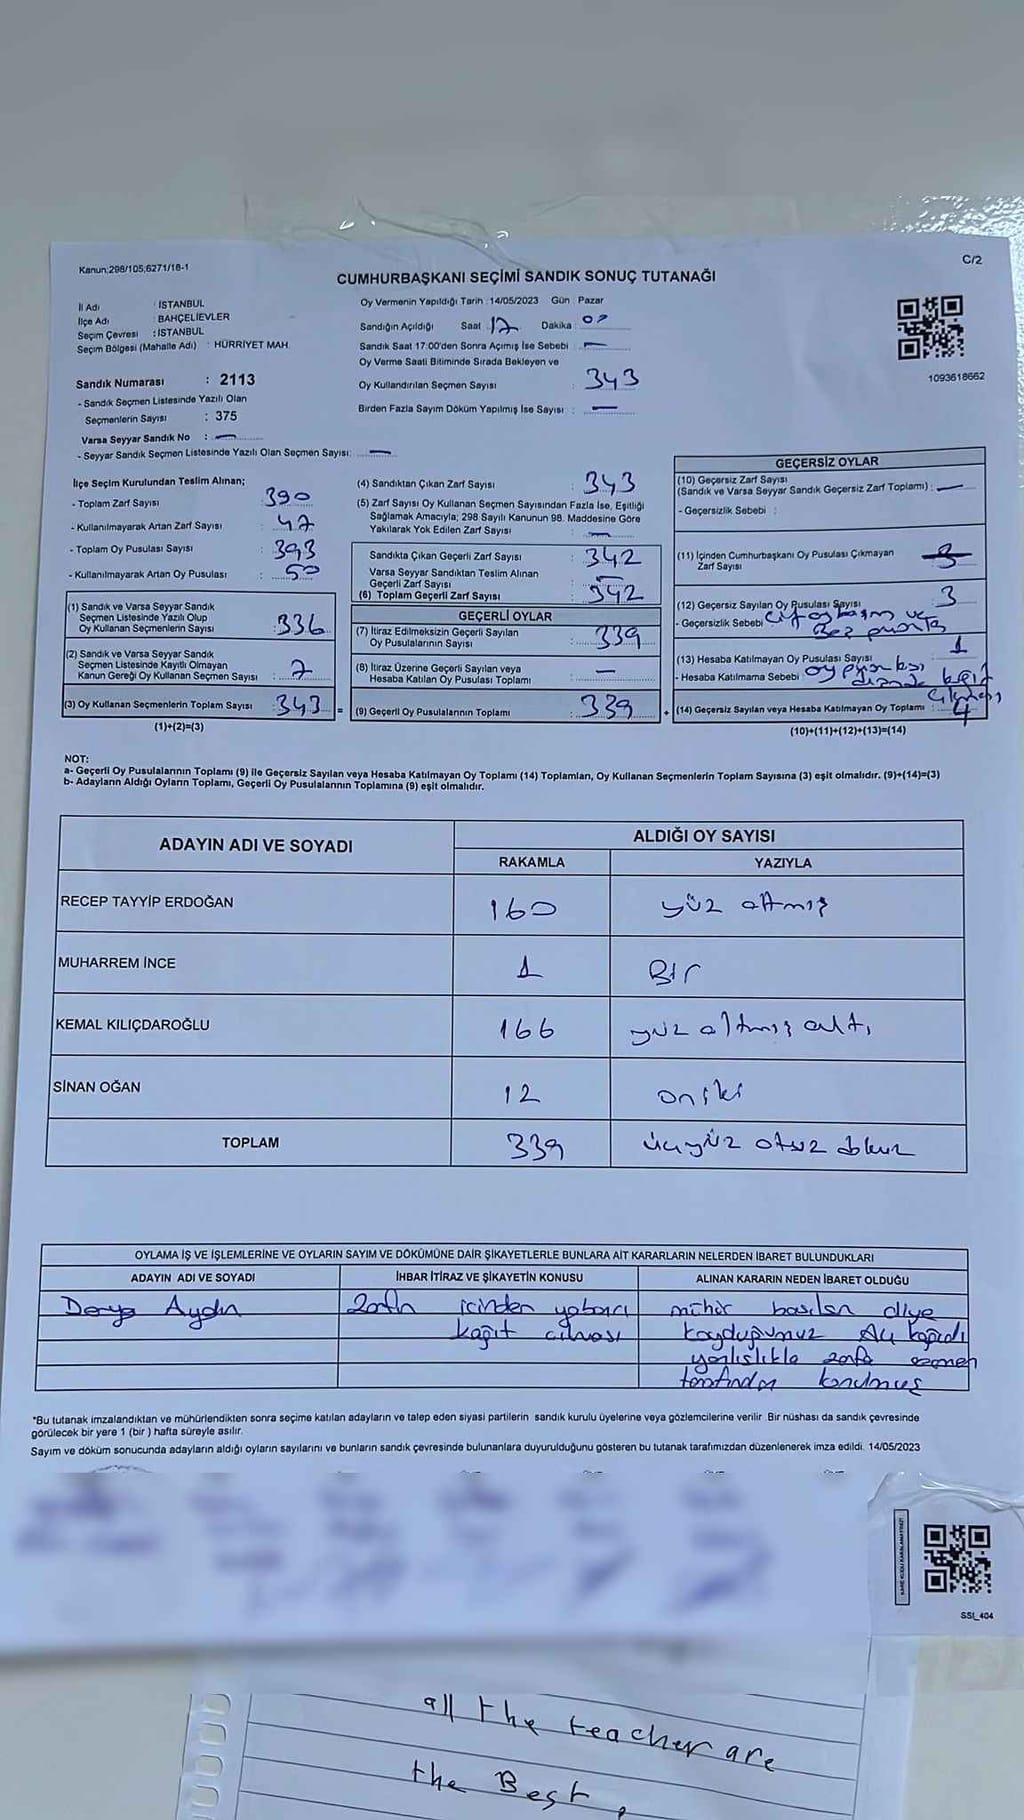 Kanun:298/105;6271/18-1
C/2
CUMHURBAŞKANI SEÇİMİ SANDIK SONUÇ TUTANAĞI
İl Adı : İSTANBUL
İlçe Adı : BAHÇELİEVLER
Seçim Çevresi : İSTANBUL
Seçim Bölgesi (Mahalle Adı) : HÜRRİYET MAH.
Oy Vermenin Yapıldığı Tarih :14/05/2023 Gün : Pazar
Sandığın Açıldığı Saat : 17 Dakika :
Sandık Saat 17:00'den Sonra Açılmış İse Sebebi : —
Oy Verme Saati Bitiminde Sırada Bekleyen ve
Oy Kullandırılan Seçmen Sayısı : 343
Birden Fazla Sayım Döküm Yapılmış İse Sayısı : —
1093618662
Sandık Numarası : 2113
- Sandık Seçmen Listesinde Yazılı Olan
Seçmenlerin Sayısı : 375
Varsa Seyyar Sandık No : —
- Seyyar Sandık Seçmen Listesinde Yazılı Olan Seçmen Sayısı: —
İlçe Seçim Kurulundan Teslim Alınan;
- Toplam Zarf Sayısı : 390
- Kullanılmayarak Artan Zarf Sayısı : 47
- Toplam Oy Pusulası Sayısı : 393
- Kullanılmayarak Artan Oy Pusulası : 50
(1) Sandık ve Varsa Seyyar Sandık
Seçmen Listesinde Yazılı Olup
Oy Kullanan Seçmenlerin Sayısı : 336
(2) Sandık ve Varsa Seyyar Sandık
Seçmen Listesinde Kayıtlı Olmayan
Kanun Gereği Oy Kullanan Seçmen Sayısı : 7
(3) Oy Kullanan Seçmenlerin Toplam Sayısı : 343 =
(1)+(2)=(3)
(4) Sandıktan Çıkan Zarf Sayısı : 343
(5) Zarf Sayısı Oy Kullanan Seçmen Sayısından Fazla İse, Eşitliği
Sağlamak Amacıyla; 298 Sayılı Kanunun 98. Maddesine Göre
Yakılarak Yok Edilen Zarf Sayısı : —
Sandıkta Çıkan Geçerli Zarf Sayısı : 342
Varsa Seyyar Sandıktan Teslim Alınan
Geçerli Zarf Sayısı : —
(6) Toplam Geçerli Zarf Sayısı : 342
GEÇERLİ OYLAR
(7) İtiraz Edilmeksizin Geçerli Sayılan
Oy Pusulalarının Sayısı : 339
(8) İtiraz Üzerine Geçerli Sayılan veya
Hesaba Katılan Oy Pusulası Toplamı : —
(9) Geçerli Oy Pusulalarının Toplamı : 339 +
GEÇERSİZ OYLAR
(10) Geçersiz Zarf Sayısı
(Sandık ve Varsa Seyyar Sandık Geçersiz Zarf Toplamı) : —
- Geçersizlik Sebebi :
(11) İçinden Cumhurbaşkanı Oy Pusulası Çıkmayan
Zarf Sayısı
(12) Geçersiz Sayılan Oy Pusulası Sayısı : 3
- Geçersizlik Sebebi : ve
(13) Hesaba Katılmayan Oy Pusulası Sayısı : 1
- Hesaba Katılmama Sebebi : oy
(14) Geçersiz Sayılan veya Hesaba Katılmayan Oy Toplamı : 4
(10)+(11)+(12)+(13)=(14)
NOT:
a- Geçerli Oy Pusulalarının Toplamı (9) ile Geçersiz Sayılan veya Hesaba Katılmayan Oy Toplamı (14) Toplamları, Oy Kullanan Seçmenlerin Toplam Sayısına (3) eşit olmalıdır. (9)+(14)=(3)
b- Adayların Aldığı Oyların Toplamı, Geçerli Oy Pusulalarının Toplamına (9) eşit olmalıdır.
ADAYIN ADI VE SOYADI
ALDIĞI OY SAYISI
RAKAMLA YAZIYLA
RECEP TAYYİP ERDOĞAN 160 yüz altmış
MUHARREM İNCE 1 Bir
KEMAL KILIÇDAROĞLU 166 yüz altmış altı
SİNAN OĞAN 12 oniki
TOPLAM 339 üçyüz otuz dokuz
OYLAMA İŞ VE İŞLEMLERİNE VE OYLARIN SAYIM VE DÖKÜMÜNE DAİR ŞİKAYETLERLE BUNLARA AİT KARARLARIN NELERDEN İBARET BULUNDUKLARI
ADAYIN ADI VE SOYADI İHBAR İTİRAZ VE ŞİKAYETİN KONUSU ALINAN KARARIN NEDEN İBARET OLDUĞU
Derya Aydın Zarfın içinden yabancı mühür basılsın diye
kağıt çıkması koyduğumuz A4 kağıdı
yanlışlıkla zarfa seçmen
tarafından konulmuş
*Bu tutanak imzalandıktan ve mühürlendikten sonra seçime katılan adayların ve talep eden siyasi partilerin sandık kurulu üyelerine veya gözlemcilerine verilir. Bir nüshası da sandık çevresinde
görülecek bir yere 1 (bir ) hafta süreyle asılır.
Sayım ve döküm sonucunda adayların aldığı oyların sayılarını ve bunların sandık çevresinde bulunanlara duyurulduğunu gösteren bu tutanak tarafımızdan düzenlenerek imza edildi. 14/05/2023
SSI_404
all the teacher are
the Best.